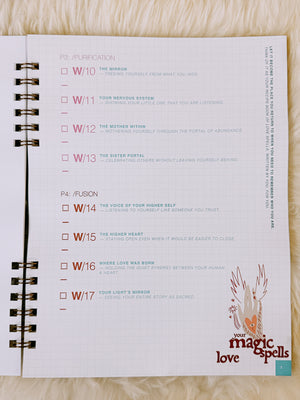 P3: /PURIFICATION
W/10 THE MIRROR
— FREEING YOURSELF FROM WHAT YOU HIDE.
W/11 YOUR NERVOUS SYSTEM
— SHOWING YOUR LITTLE ONE THAT YOU ARE LISTENING.
W/12 THE MOTHER WITHIN
— MOTHERING YOURSELF THROUGH THE PORTAL OF ABUNDANCE.
W/13 THE SISTER PORTAL
— CELEBRATING OTHERS WITHOUT LEAVING YOURSELF BEHIND.
P4: /FUSION
W/14 THE VOICE OF YOUR HIGHER SELF
— LISTENING TO YOURSELF LIKE SOMEONE YOU TRUST.
W/15 THE HIGHER HEART
— STAYING OPEN EVEN WHEN IT WOULD BE EASIER TO CLOSE.
W/16 WHERE LOVE WAS BORN
— HOLDING THE (SOUL'S) SYNERGY BETWEEN YOUR HUMAN
& HEART.
W/17 YOUR LIGHT'S MIRROR
— SEEING YOUR ENTIRE STORY AS SACRED.
LET IT BECOME THE PLACE YOU RETURN TO WHEN YOU NEED TO REMEMBER WHO YOU ARE.
your
magic
love spells